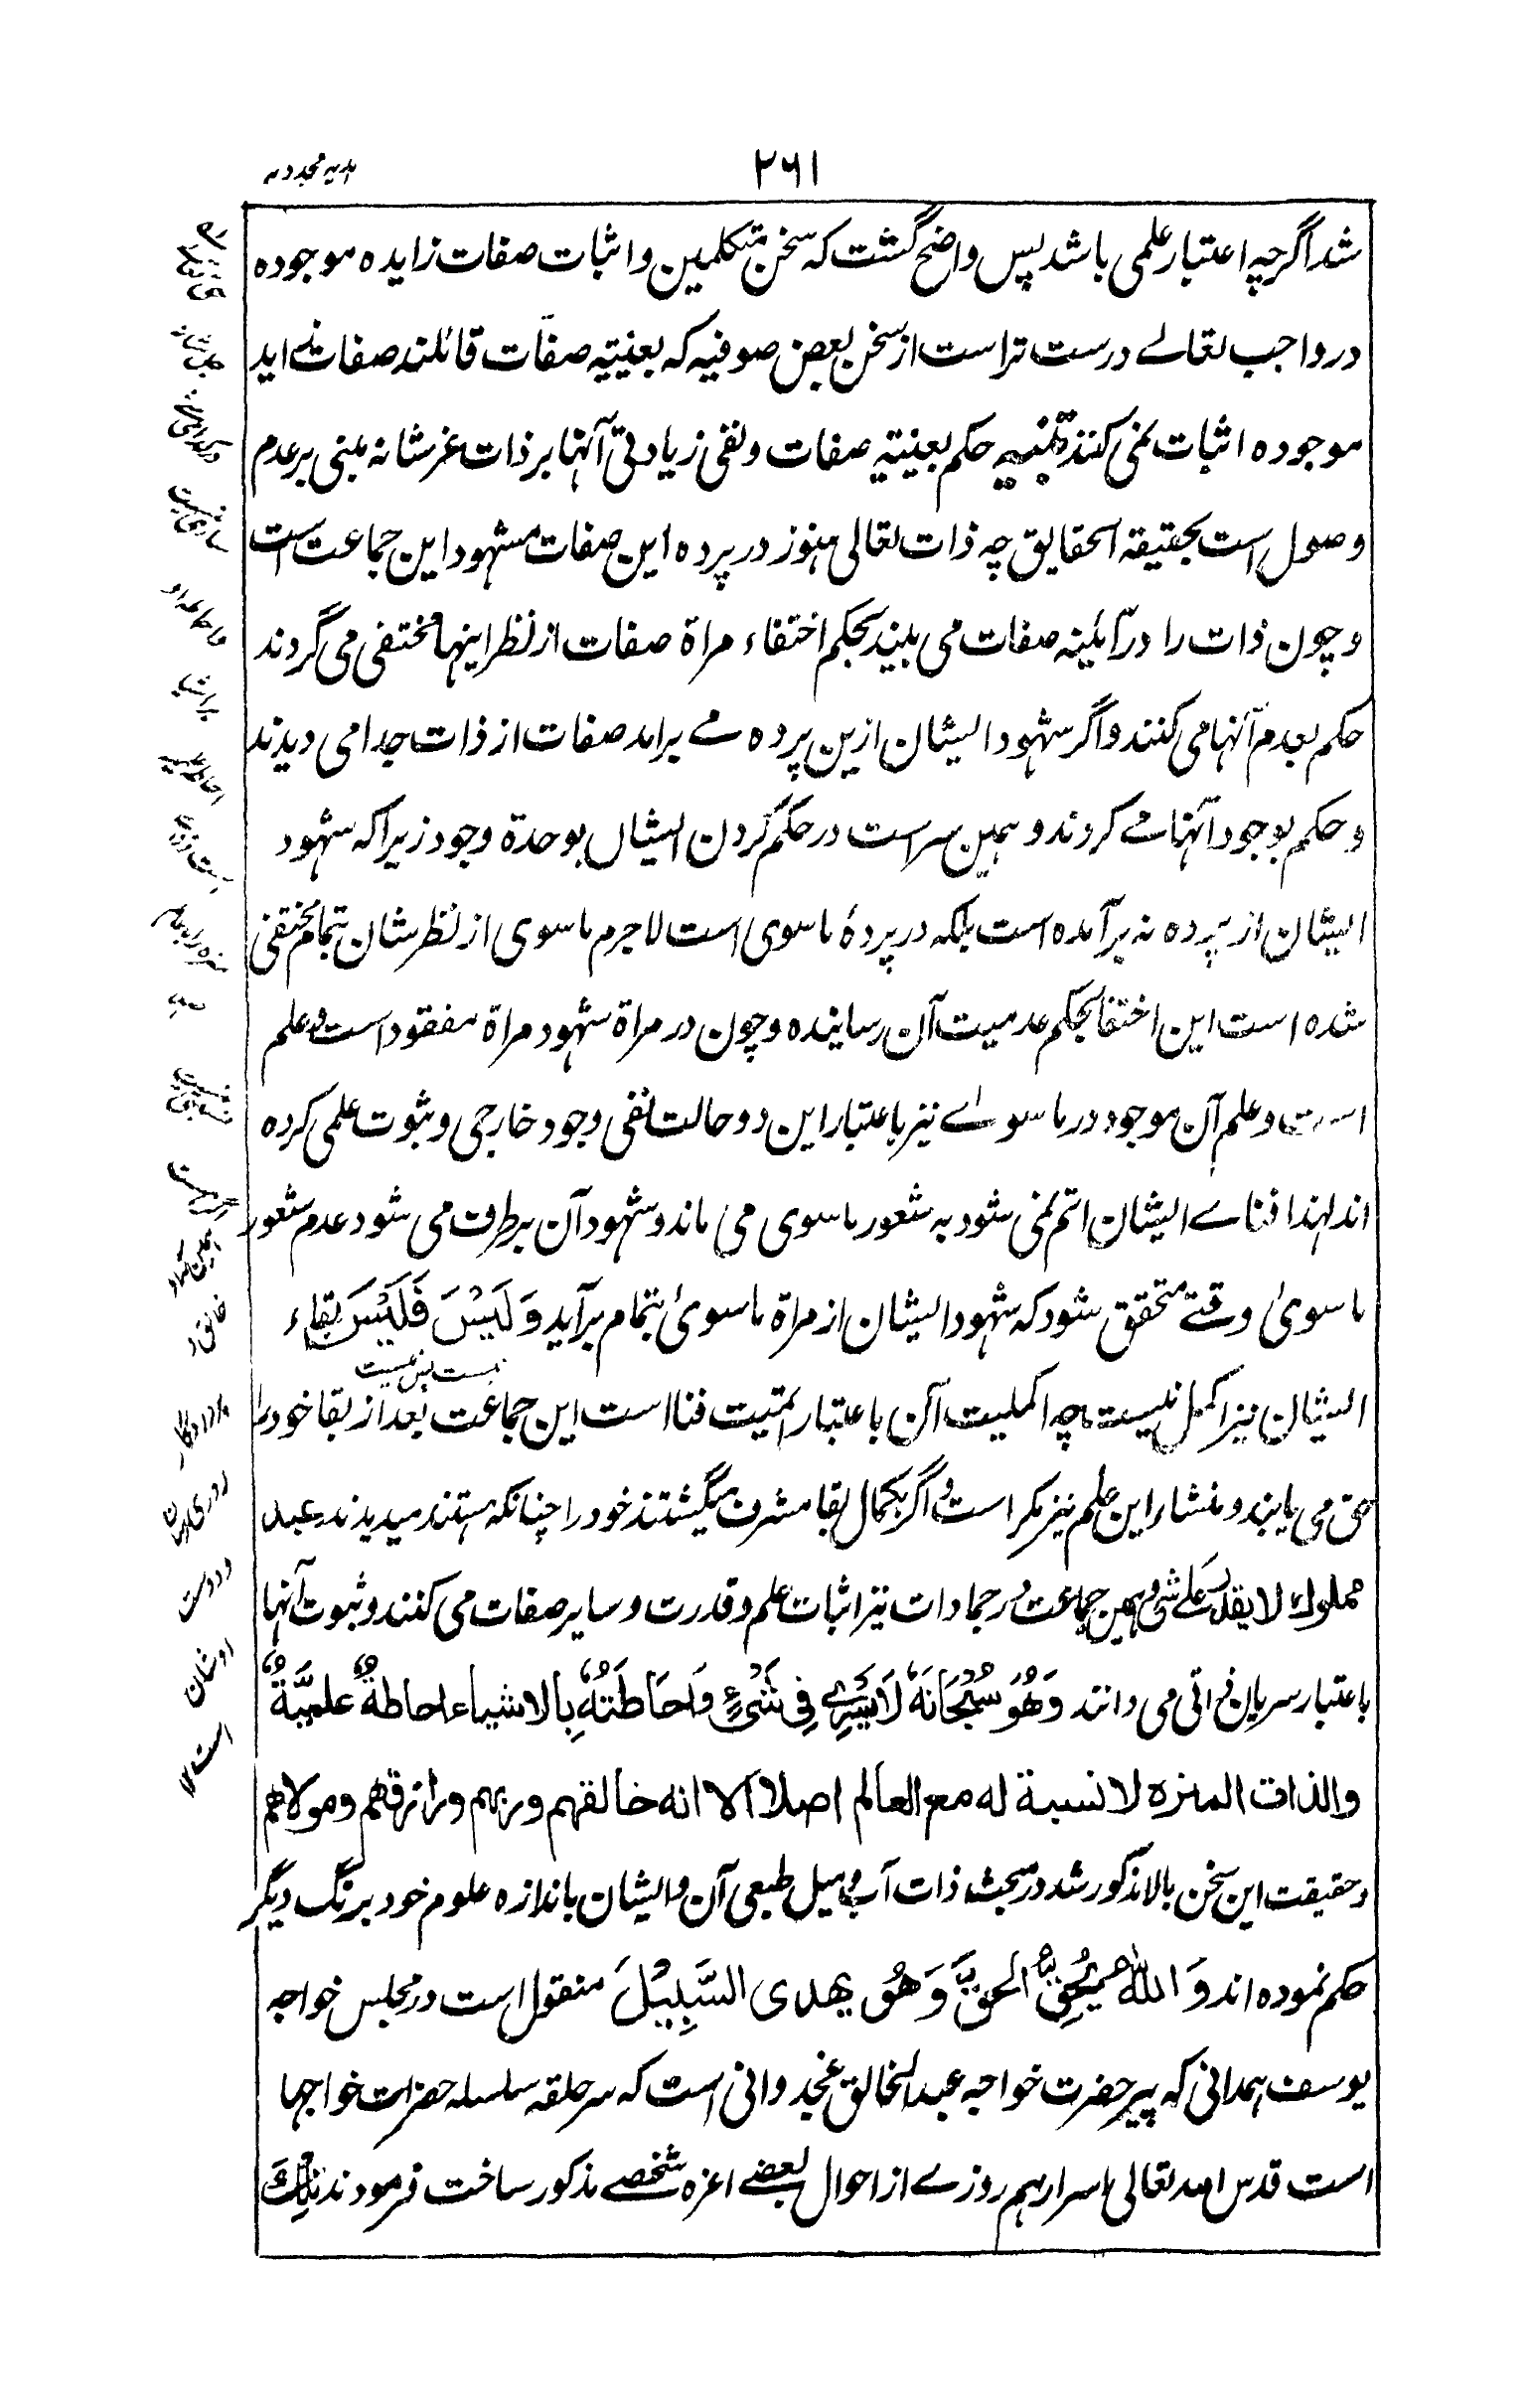 ۲۶۱
ہدیہ مجددیہ
شد اگرچہ اعتبار علمی باشد پس واضح گشت کہ سخن متکلمین و اثبات صفات زایدہ موجودہ
در واجب تعالے درست تر است از سخن بعض صوفیہ کہ بعینیتہ صفات قائلند صفات زاید
موجودہ اثبات نمی کنند تنبیہ حکم بعینیتہ صفات و نفی زیادتی آنہا بر ذات عزشانہ مبنی بر عدم
وصول است بحقیقۃ الحقایق چہ ذات تعالی ہنوز در پردہ این صفات مشہود این جماعت است
و چون ذات را در آئینہ صفات می بینند بحکم اختفاء مراۃ صفات از نظر اینہا مختفی می گردند
حکم بعدم آنہا می کنند و اگر شہود ایشان ازین پردہ مے براید صفات از ذات جدا می دیدند
و حکم بوجود آنہا مے کردند و ہمین سر است در حکم کردن ایشاں بوحدۃ وجود زیرا کہ شہود
ایشان از پردہ نہ برآمدہ است بلکہ در پردۂ ماسوی است لاجرم ماسوی از نظر شان بتمام مختفی
شدہ است این اختفا بحکم عدمیت آن رسانیدہ و چون در مراۃ شہود مراۃ مفقود است و علم
است و علم آن موجود در ماسواے نیز باعتبار این دو حالت نفی وجود خارجی و ثبوت علمی کردہ
اند لہذا فناے ایشان اتم نمی شود بہ شعور ماسوی می ماند و شہود آن برطرف می شود عدم شعور
ماسویٰ وقتے متحقق شود کہ شہود ایشان از مراۃ ماسویٰ بتمام برآید وَ لَیْسَ فَلَیْسَ بقاء
نیست پس نیست
ایشان نیز اکمل نیست چہ اکملیت آن باعتبار اتمیت فنا است این جماعت بعد از بقا خود را
حق می یابند و منشاء این علم نیز مکر است و اگر بکمال بقا مشرف میگشتند خود را چنانکہ ہستند میدیدند عبد
مملوك لا یقدر علے شئ و ہمین جماعت در جمادات نیز اثبات علم و قدرت و سایر صفات می کنند و ثبوت آنہا
باعتبار سریان ذاتی می دانند وَهُوَ سُبْحَانَهٗ لَا یَسْرِیْ فِیْ شَیْءٍ وَاحَاطَتُهٗ بِالاشیاء احاطةٌ علمیَّةٌ
والذات المنزه لا نسبة له مع العالم اصلا الا انه خالقهم وربهم ورازقهم ومولاهم
و حقیقت این سخن بالا مذکور شد در مبحث ذات آب و میل طبعی آن و ایشان باندازہ علوم خود برنگ دیگر
حکم نمودہ اند وَ اللهُ یُحِقُّ الحَقَّ وَهُوَ یهدی السَّبِیْلَ منقول است در مجلس خواجہ
یوسف ہمدانی کہ پیر حضرت خواجہ عبدالخالق غجدوانی است کہ سر حلقہ سلسلہ حضرات خواجہا
است قدس اللہ تعالی اسرارہم روزے از احوال بعضے اعزہ شخصے مذکور ساخت فرمودند تِلْكَ